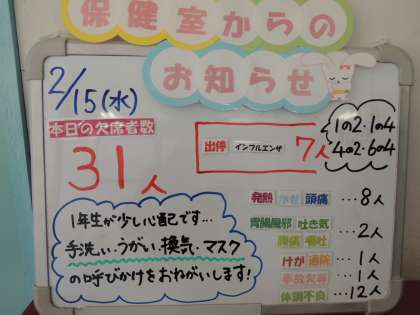 保健室からの
お知らせ
2/15(水)
本日の欠席者数
31人
出停 インフルエンザ 7人
1の2.1の4
4の2.6の4
発熱 頭痛 …8人
胃腸風邪 吐き気
腹痛 嘔吐 …2人
けが 通院 …1人
事故欠席 …1人
体調不良 …12人
1年生が少し心配です…
手洗い.うがい.換気.マスク
の呼びかけをおねがいします!